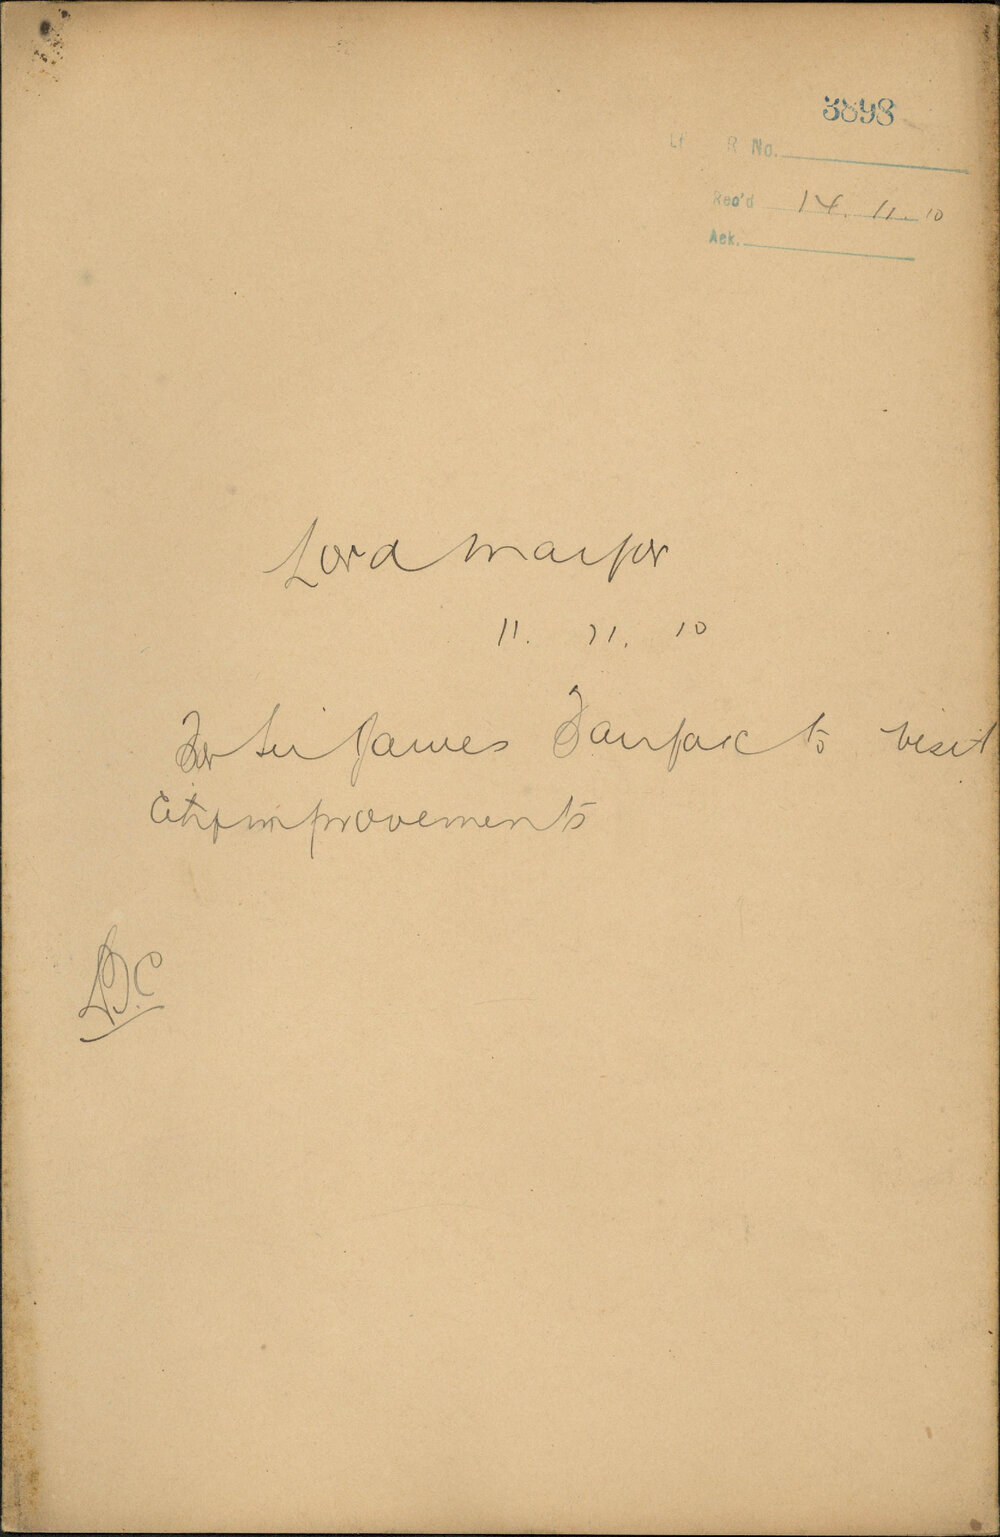 3898
R No.
Rec'd 14. 11. 10
Ack.
Lord Mayor
11. 11. 10
For Sir James Fairfax to visit
City improvements